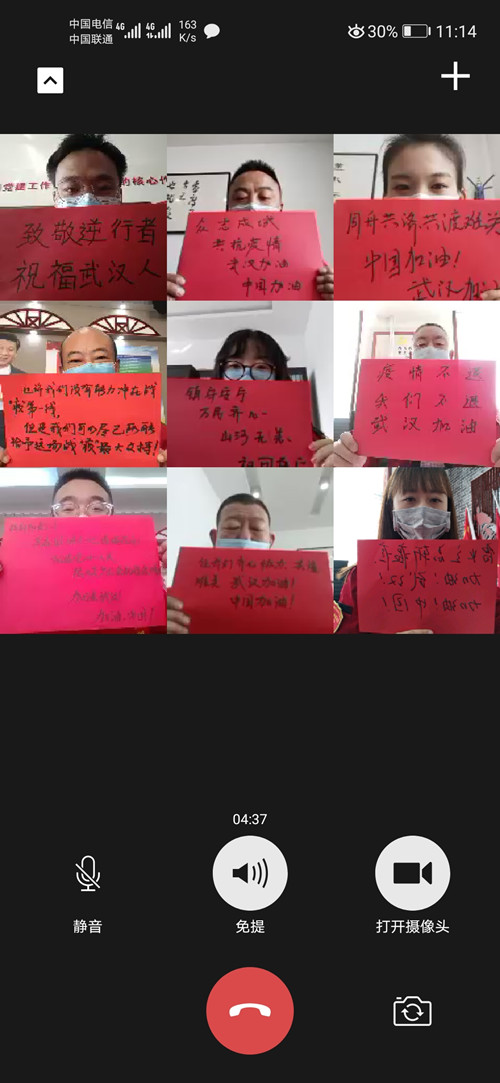 中国电信
4G
4G
163
中国联通
K/s
30%
11:14
党建工作
的核心
致敬逆行者
祝福武汉人
众志成城
共抗疫情
武汉加油
中国加油
同舟共济共渡难关
中国加油！
武汉加油
也许我们没有能力冲在战
“疫”第一线，
但是我们可以尽己所能
给予这场战“疫”最大支持！
万众齐心
山河无恙
疫情不退
我们不退
武汉加油
加油，中国！
让我们齐心协力 共渡
难关 武汉加油！
中国加油！
加油！武汉！
加油！中国！
04:37
静音
免提
打开摄像头